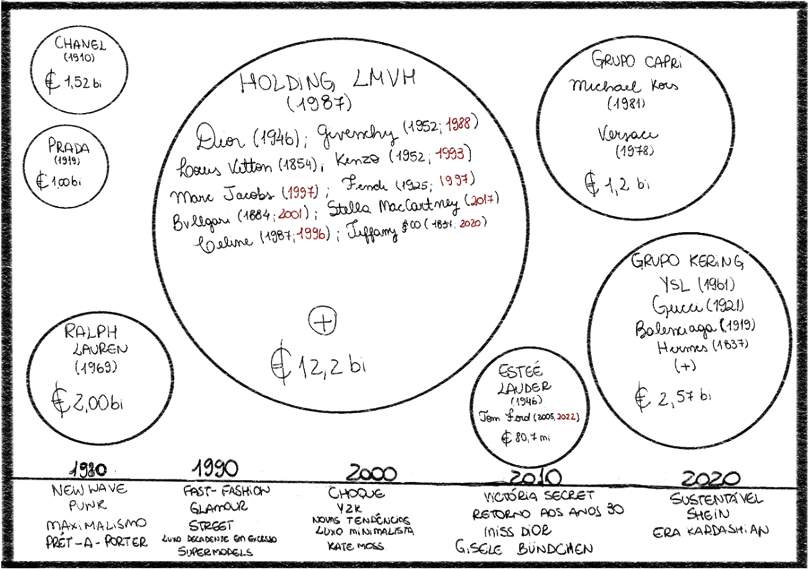 CHANEL
(1910)
€ 1,52 bi
PRADA
(1919)
€ 1,00 bi
RALPH
LAUREN
(1969)
€ 2,00 bi
HOLDING LMVH
(1987)
Dior (1946); Givenchy (1952; 1988)
Louis Vitton (1854); Kenzo (1952; 1993)
Marc Jacobs (1997); Fendi (1925; 1997)
Bvllgari (1884; 2001); Stella MacCartney (2017)
Celine (1987; 1996); Tiffany &CO (1837; 2020)
+
€ 12,2 bi
GRUPO CAPRI
Michael Kors
(1981)
Versace
(1978)
€ 1,2 bi
GRUPO KERING
YSL (1961)
Gucci (1921)
Balenciaga (1919)
Hermes (1837)
(+)
€ 2,57 bi
ESTEÉ
LAUDER
(1946)
Tom Ford (2005, 2022)
€ 80,7 mi
1980
NEW WAVE
PUNK
MAXIMALISMO
PRÉT-A-PORTER
1990
FAST-FASHION
GLAMOUR
STREET
LUXO DECADENTE EM EXCESSO
SUPERMODELS
2000
CHOQUE
Y2K
NOVAS TENDÊNCIAS
LUXO MINIMALISTA
KATE MOSS
2010
VICTÓRIA SECRET
RETORNO AOS ANOS 90
MISS DIOR
GISELE BÜNDCHEN
2020
SUSTENTÁVEL
SHEIN
ERA KARDASHIAN